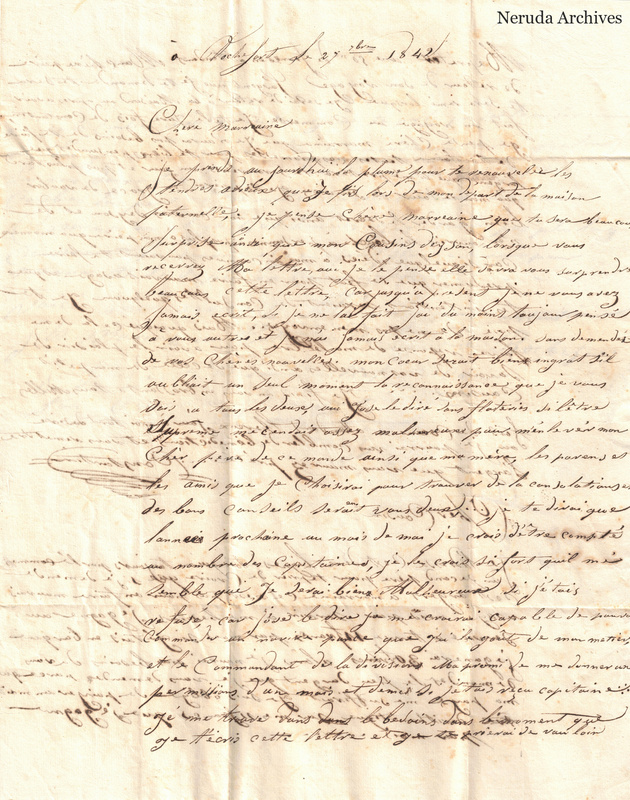 Neruda Archives
à Rochefort le 27 7bre 1842
Chere marreaine
je prend au jourd'hui la plume pour te renouvellée les
tendres adieux que je fis lors de mon départ de la maison
paternelle. je pense Chere marreaine que tu sera beaucou
surprise ainsi que mon Cousins lorsque vous
recevrez Ma lettre, oui je le pense elle serra vous surprendre
beaucoup cette lettre, car jusqu'à present je ne vous avez
jamais ecrit, si je ne lai fait jai du moins toujour pensé
à vous autres et je nai jamais ecrit à la maison sans demender
de vos Chères nouvelles. mon Coeur serait bien ingrat s'il
oubliait un seul moment la reconnaissance que je vous
dois à tous les deux, oui j'ose le dire sans flateries si l'être
Suprême me rendait assez malheureux pour m'enlever mon
Cher père de ce monde ainsi que ma mère, les parens et
les amis que je Choisirai pour trouver de la consolations et
des bons conseils serait vous deux. je te dirai que
lannée prochaine au mois de mai je crois d'être compté
au nombre des Capitaines, je le crois si fort quil me
semble que je serai bien Malheureux si j'étais
refusé car j'ose le dire je me croirai capable de pouvoir
Commander un navire parce que j'ai le goût de mon metier
et le Commandant de la division Ma promi de me donner une
permissions d'un mois et demis si jétais recu capitaine
je me trouve dans le besoin dans le moment que
je técris cette lettre et je te prierai de vouloir